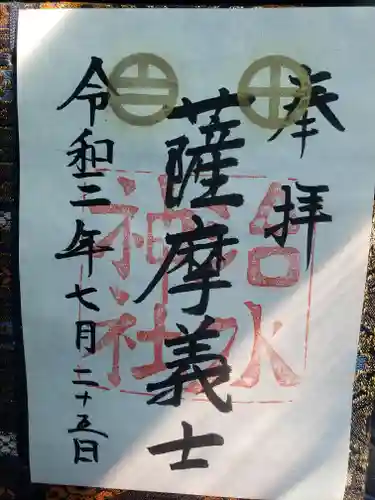 奉拝
薩摩義士
治水
神社
令和二年七月二十五日